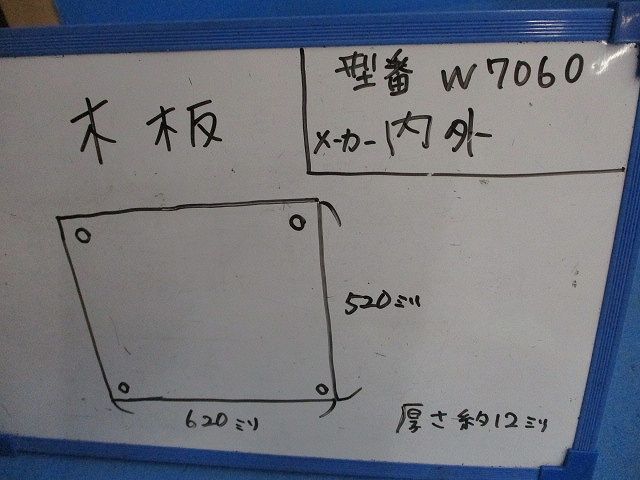 型番 W7060
メーカー 内外
木板
520ミリ
620ミリ
厚さ約12ミリ